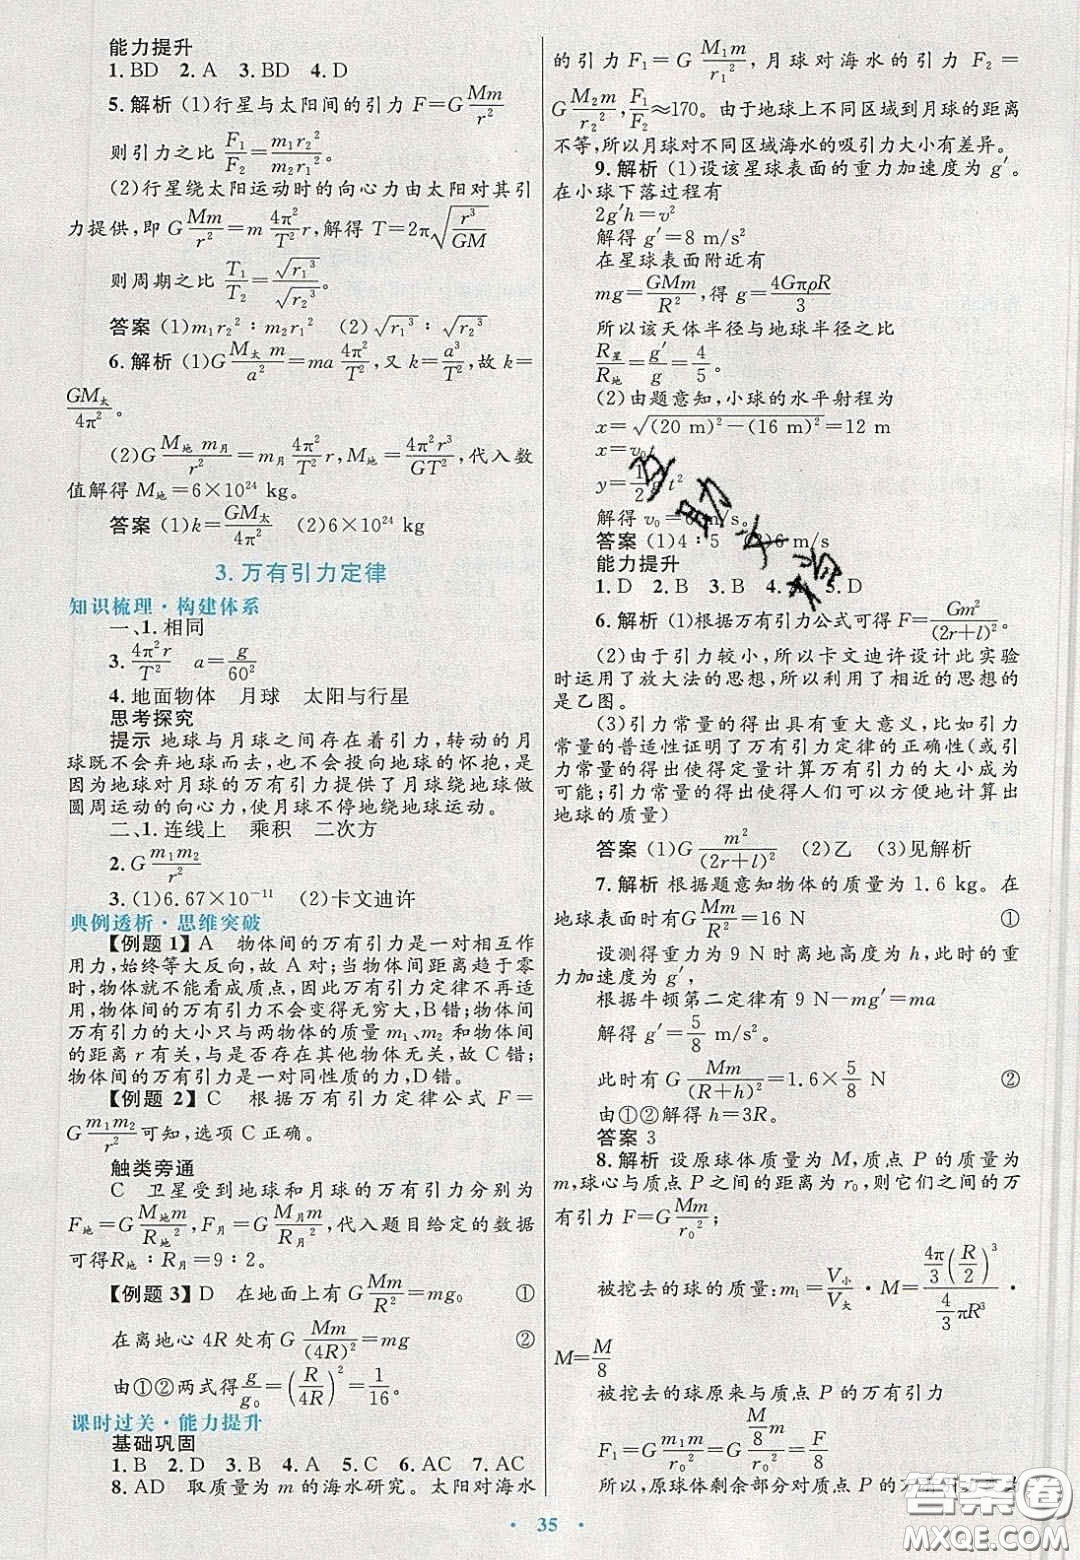 能力提升
1. BD　2. A　3. BD　4. D
5. 解析 (1)行星与太阳间的引力 F=G\frac{Mm}{r^2}
则引力之比 \frac{F_1}{F_2}=\frac{m_1r_2^2}{m_2r_1^2}
(2)行星绕太阳运动时的向心力由太阳对其引
力提供,即 G\frac{Mm}{r^2}=m\frac{4π^2}{T^2}r,解得 T=2π\sqrt{\frac{r^3}{GM}}
则周期之比 \frac{T_1}{T_2}=\frac{\sqrt{r_1^3}}{\sqrt{r_2^3}}
答案 (1)m_1r_2^2∶m_2r_1^2　(2)\sqrt{r_1^3}∶\sqrt{r_2^3}
6. 解析 (1)G\frac{M_太 m}{a^2}=ma\frac{4π^2}{T^2},又 k=\frac{a^3}{T^2},故 k=
\frac{GM_太}{4π^2}。
(2)G\frac{M_地 m_月}{r^2}=m_月\frac{4π^2}{T^2}r,M_地=\frac{4π^2r^3}{GT^2},代入数
值解得 M_地=6×10^{24} kg。
答案 (1)k=\frac{GM_太}{4π^2}　(2)6×10^{24} kg
3. 万有引力定律
知识梳理·构建体系
一、1. 相同
3. \frac{4π^2r}{T^2}　a=\frac{g}{60^2}
4. 地面物体　月球　太阳与行星
思考探究
提示 地球与月球之间存在着引力,转动的月
球既不会弃地球而去,也不会投向地球的怀抱,是
因为地球对月球的万有引力提供了月球绕地球做
圆周运动的向心力,使月球不停地绕地球运动。
二、1. 连线上　乘积　二次方
2. G\frac{m_1m_2}{r^2}
3. (1)6.67×10^{-11}　(2)卡文迪许
典例透析·思维突破
【例题 1】 A　物体间的万有引力是一对相互作
用力,始终等大反向,故 A 对;当物体间距离趋于零
时,物体就不能看成质点,因此万有引力定律不再适
用,物体间的万有引力不会变得无穷大,B 错;物体间
万有引力的大小只与两物体的质量 m_1、m_2 和物体间
的距离 r 有关,与是否存在其他物体无关,故 C 错;
物体间的万有引力是一对同性质的力,D 错。
【例题 2】 C　根据万有引力定律公式 F=
G\frac{m_1m_2}{r^2}可知,选项 C 正确。
触类旁通
C　卫星受到地球和月球的万有引力分别为
F_地=G\frac{M_地m}{R_地^2},F_月=G\frac{M_月m}{R_月^2},代入题目给定的数据
可得R_地∶R_月=9∶2。
【例题 3】 D　在地面上有 G\frac{Mm}{R^2}=mg_0　①
在离地心 4R 处有 G\frac{Mm}{(4R)^2}=mg　②
由①②两式得\frac{g}{g_0}=\left(\frac{R}{4R}\right)^2=\frac{1}{16}。
课时过关·能力提升
基础巩固
1. B　2. D　3. B　4. A　5. C　6. AC　7. AC
8. AD　取质量为 m 的海水研究。太阳对海水
的引力 F_1=G\frac{M_1m}{r_1^2},月球对海水的引力 F_2=
G\frac{M_2m}{r_2^2},\frac{F_1}{F_2}≈170。由于地球上不同区域到月球的距离
不等,所以月球对不同区域海水的吸引力大小有差异。
9. 解析 (1)设该星球表面的重力加速度为 g′。
在小球下落过程中有
2g′h=v^2
解得 g′=8 m/s^2
在星球表面附近有
mg=\frac{GMm}{R^2},得 g=\frac{4GπρR}{3}
所以该天体半径与地球半径之比
\frac{R_星}{R_地}=\frac{g′}{g}=\frac{4}{5}。
(2)由题意知,小球的水平射程为
x=\sqrt{(20 m)^2-(16 m)^2}=12 m
x=v_0t
y=\frac{1}{2}g′t^2
解得 v_0=6 m/s。
答案 (1)4∶5　(2)6 m/s
能力提升
1. D　2. B　3. B　4. A　5. D
6. 解析 (1)根据万有引力公式可得 F=\frac{Gm^2}{(2r+l)^2}。
(2)由于引力较小,所以卡文迪许设计此实验
时运用了放大法的思想,所以利用了相近的思想的
是乙图。
(3)引力常量的得出具有重大意义,比如引力
常量的普适性证明了万有引力定律的正确性(或引
力常量的得出使得定量计算万有引力的大小成为
可能;引力常量的得出使得人们可以方便地计算出
地球的质量)
答案 (1)G\frac{m^2}{(2r+l)^2}　(2)乙　(3)见解析
7. 解析 根据题意知物体的质量为 1.6 kg。在
地球表面时有G\frac{Mm}{R^2}=16 N　①
设测得重力为 9 N 时离地高度为 h,此时的重
力加速度为 g′,
根据牛顿第二定律有 9 N-mg′=ma
解得 g′=\frac{5}{8} m/s^2。
此时有 G\frac{Mm}{(R+h)^2}=1.6×\frac{5}{8} N　②
由①②解得 h=3R。
答案 3
8. 解析 设原球体质量为 M,质点 P 的质量为
m,球心与质点 P 之间的距离为 r_0,则它们之间的万
有引力 F=G\frac{Mm}{r_0^2};
被挖去的球的质量:m_1=\frac{V_小}{V_大}·M=\frac{\frac{4π}{3}\left(\frac{R}{2}\right)^3}{\frac{4}{3}πR^3}·
M=\frac{M}{8}
被挖去的球原来与质点 P 的万有引力
F_1=G\frac{m_1m}{r_0^2}=G\frac{\frac{M}{8}m}{r_0^2}=\frac{F}{8}
所以,原球体剩余部分对质点 P 的万有引力变为
· 35 ·
互助文档
答案卷
MXQE.COM